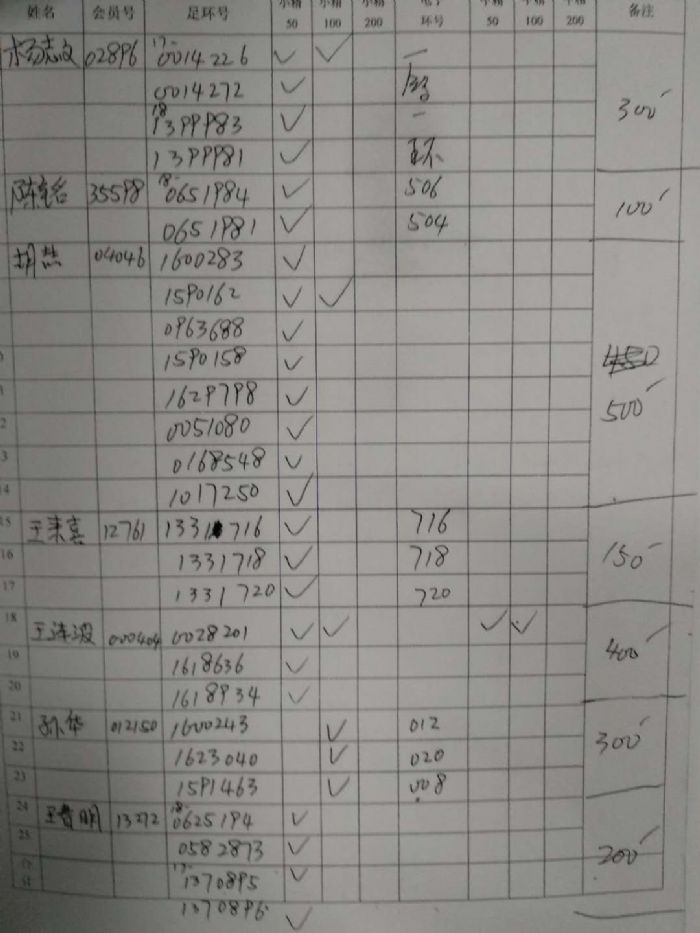 姓名 会员号 足环号 50 100 200 环号 50 100 200 备注
杨志文 02896 17- 0014226 ✓ ✓ 一
0014272 ✓
18 1399983 ✓ 一 300
1399981 ✓ 环
陈 35598 18- 0651984 ✓ 506
0651981 ✓ 504 100
胡 04046 1600283 ✓
1590162 ✓ ✓
0963688 ✓
1590158 ✓
1629798 ✓ 500
2 0051080 ✓
3 0168548 ✓
14 1017250 ✓
15 王来喜 12761 1331716 ✓ 716
16 1331718 ✓ 718 150
17 1331720 ✓ 720
18 王涛波 000404 0028201 ✓ ✓ ✓ ✓
19 1618636 ✓ 400
20 1618934 ✓
21 孙华 012150 1600243 ✓ 012
22 1623040 ✓ 020 300
23 1591463 ✓ 008
24 王晋明 13272 18- 0625194 ✓
25 0582873 ✓ 200
17- 1370895 ✓
1370896 ✓